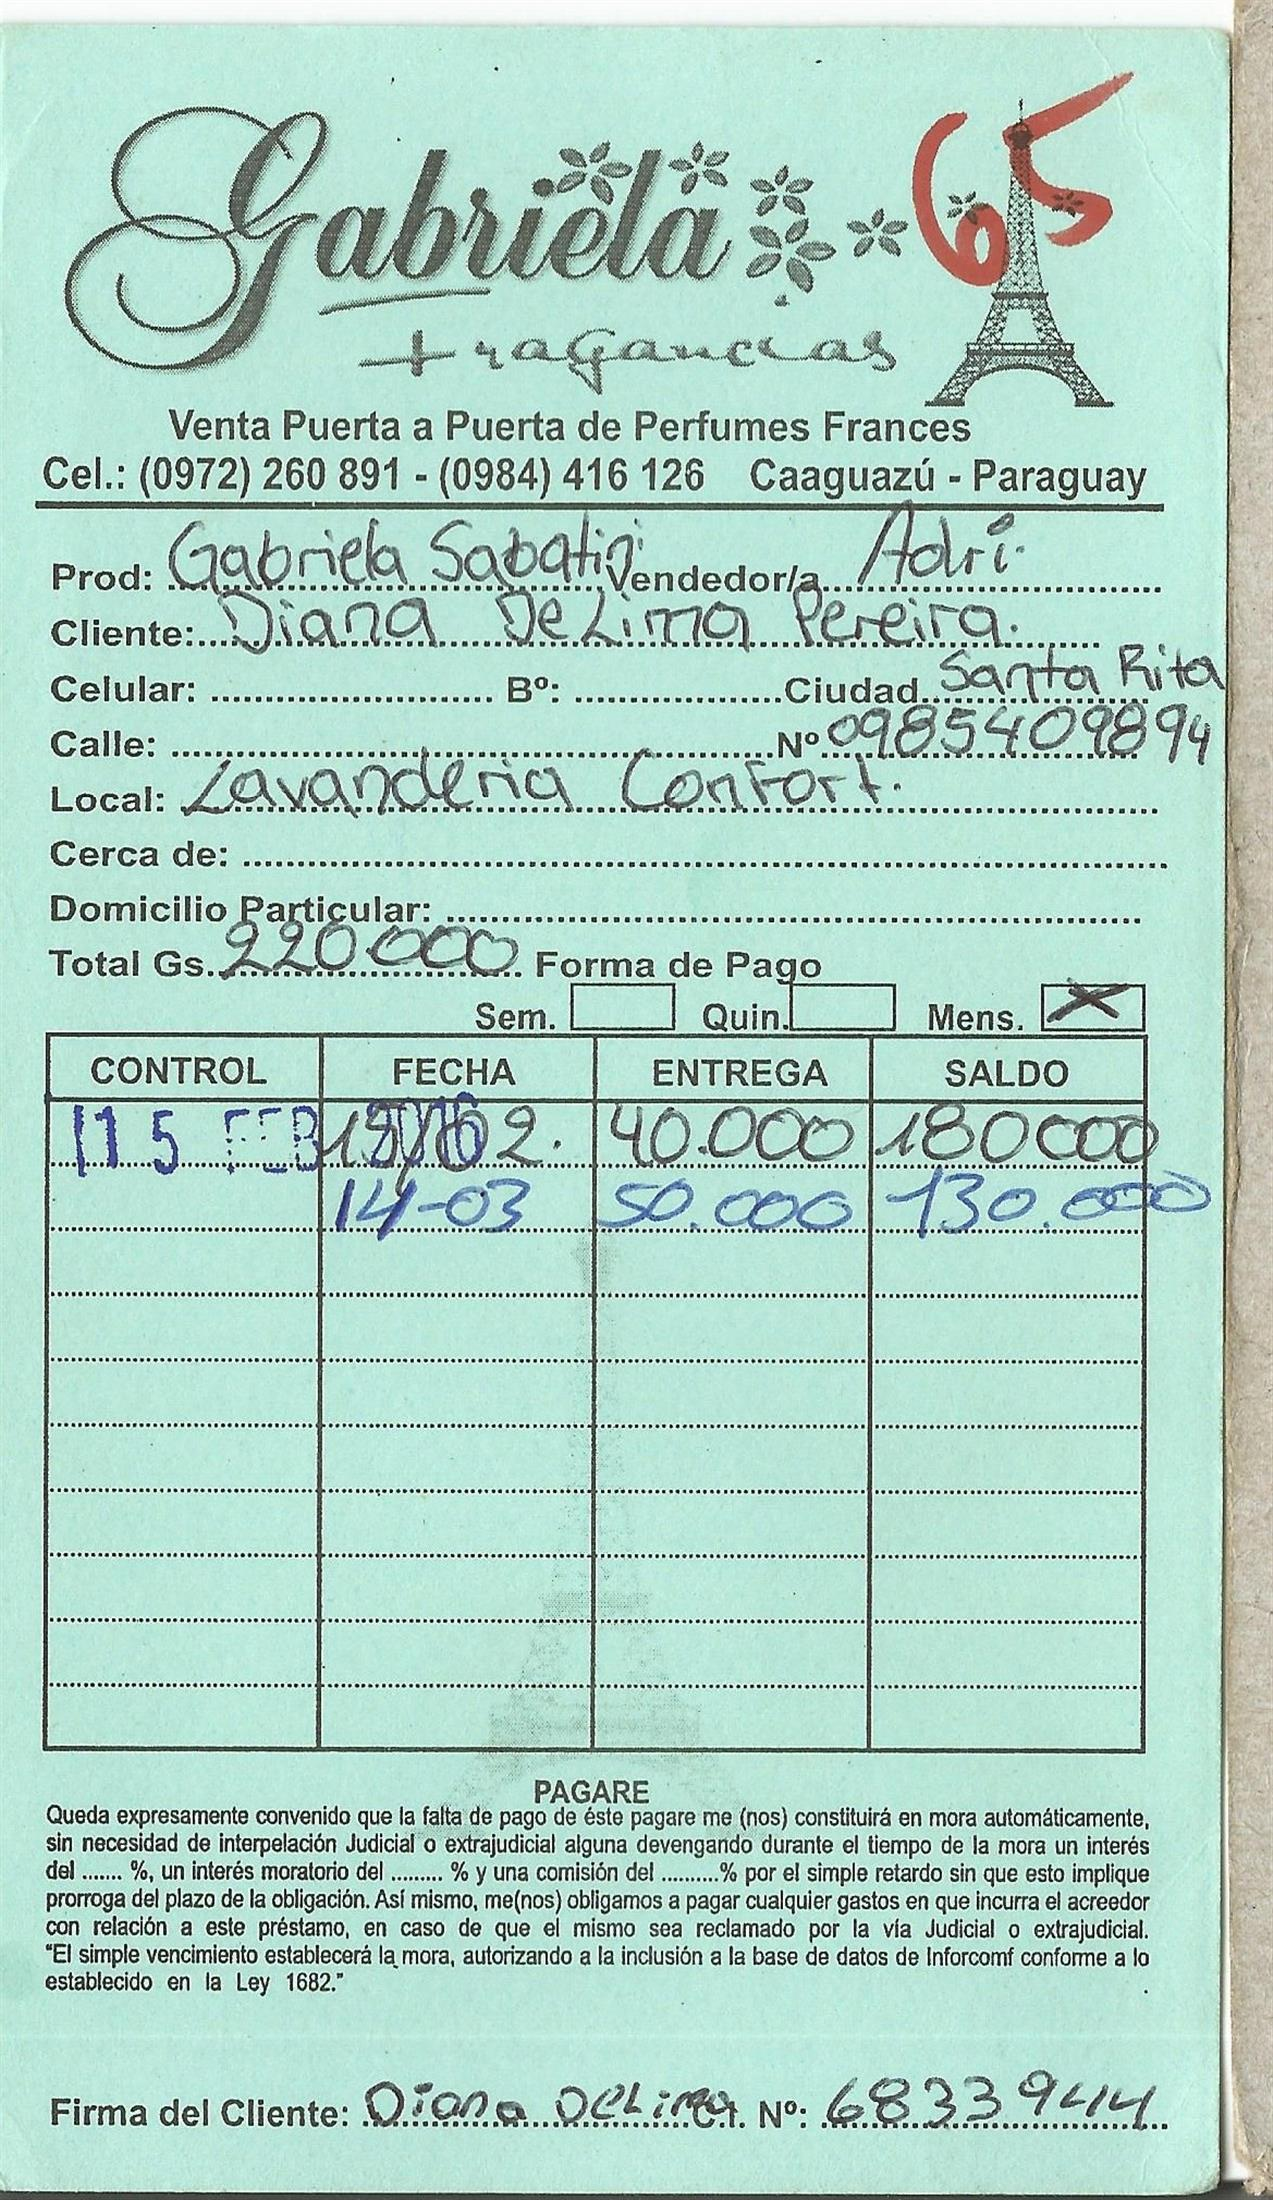 65
Gabriela
Fragancias
Venta Puerta a Puerta de Perfumes Frances
Cel.: (0972) 260 891 - (0984) 416 126 Caaguazú - Paraguay
Prod: Gabriela Sabatini Vendedor/a Adri.
Cliente: Diana De Lima Pereira.
Celular: Bº: Ciudad Santa Rita
Calle: Nº 0985409894
Local: Lavanderia Confort.
Cerca de:
Domicilio Particular:
Total Gs. 220.000 Forma de Pago
Sem. Quin. Mens. X
CONTROL FECHA ENTREGA SALDO
15 FEB 2016 15/02. 40.000 180000
14-03 50.000 130.000
PAGARE
Queda expresamente convenido que la falta de pago de éste pagare me (nos) constituirá en mora automáticamente,
sin necesidad de interpelación Judicial o extrajudicial alguna devengando durante el tiempo de la mora un interés
del ....... %, un interés moratorio del ......... % y una comisión del ..........% por el simple retardo sin que esto implique
prorroga del plazo de la obligación. Así mismo, me(nos) obligamos a pagar cualquier gastos en que incurra el acreedor
con relación a este préstamo, en caso de que el mismo sea reclamado por la vía Judicial o extrajudicial.
"El simple vencimiento establecerá la mora, autorizando a la inclusión a la base de datos de Inforcomf conforme a lo
establecido en la Ley 1682."
Firma del Cliente: Diana De Lima C.I. Nº: 6833944